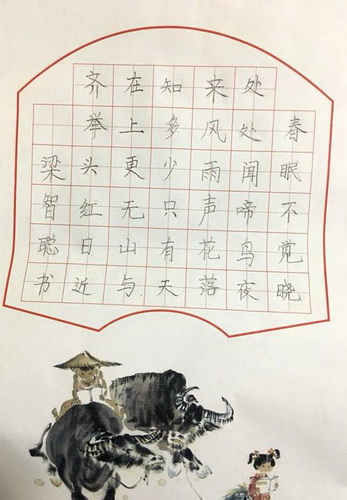 春眠不觉晓
处处闻啼鸟夜
来风雨声花落
知多少只有天
在上更无山与
齐举头红日近
梁智聪书